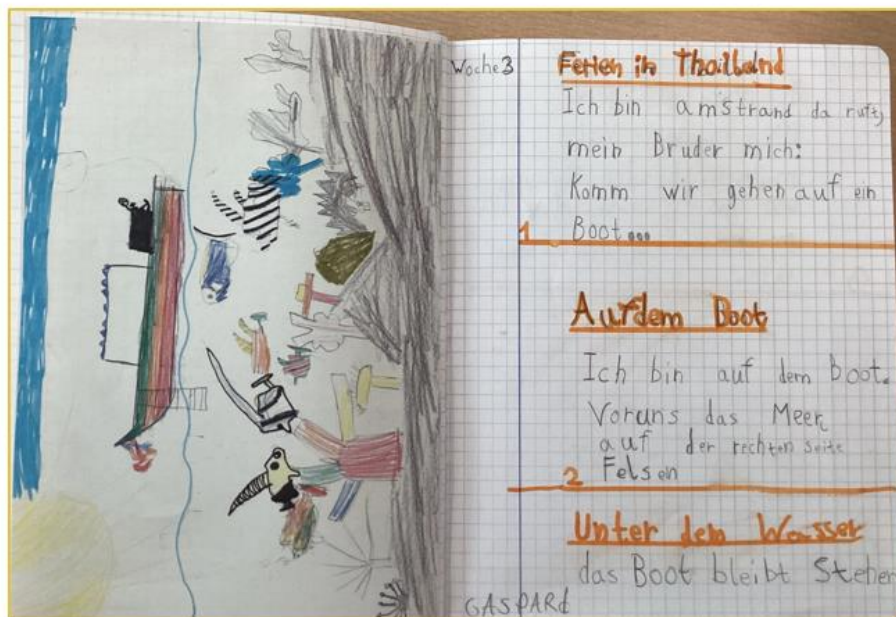 Woche 3
Ferien in Thailand
Ich bin amstrand da ruft
mein Bruder mich:
Komm wir gehen auf ein
1. Boot...
Auf dem Boot
Ich bin auf dem boot.
Voruns das Meer
auf der rechten seite
2 Felsen
Unter dem Wasser
das Boot bleibt Stehen
GASPARd